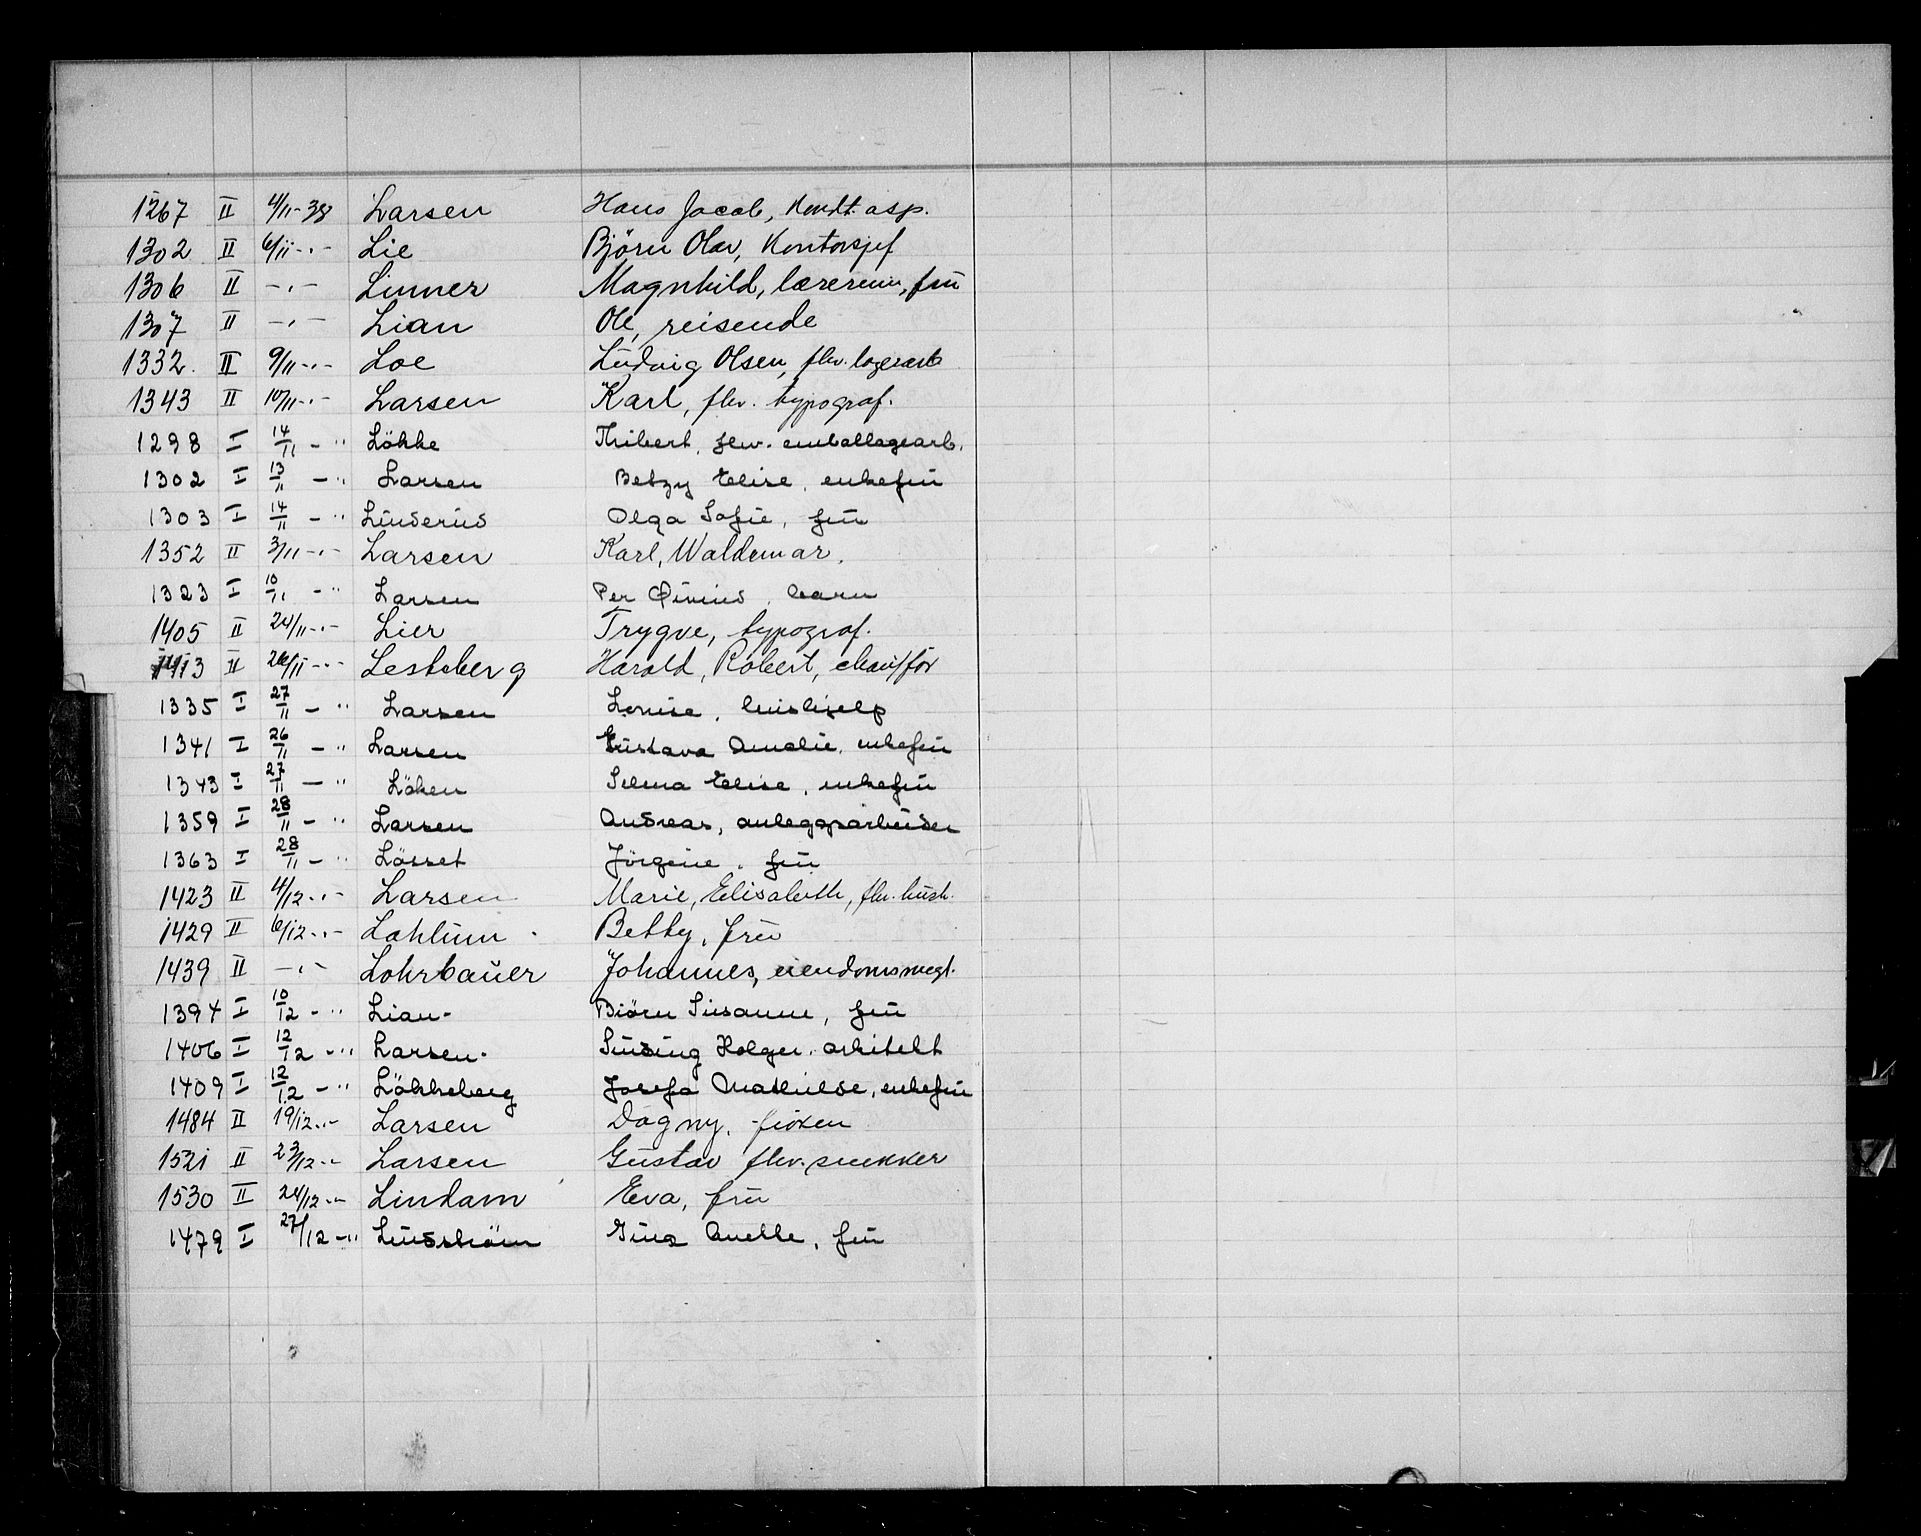 1267 II 4/11-38 Larsen Hans Jacob, kondt. asp.
1302 II 6/11 -"- Lie Björn Olav, Kontorsjef
1306 II -"- Linner Magnhild, lærerinne, frü
1307 II -"- Lian Ole, reisende
1332. II 9/11 -"- Loe Lüdvig Olsen, fhv. lagerarb
1343 II 10/11 -"- Larsen Karl, fhv. typograf.
1298 I 14/11 - " Lökke Thibert, fhv. emballagearb.
1302 I 13/11 - " Larsen Betzy Elise, enkefrü
1303 I 14/11 - " Lünderüd Olga Sofie, frü
1352 II 3/11 -"- Larsen Karl, Waldemar.
1323 I 10/11 - " Larsen Per Öiviud, barn
1405 II 24/11 -"- Lier Trygve, typograf.
1413 II 26/11 -"- Lesteberg Harald, Robert, chauffør
1335 I 27/11 - " Larsen Lovise, hüshjelp
1341 I 26/11 - " Larsen Güstava Amalie, enkefrü
1343 I 27/11 - " Löken Selma Elise, enkefrü
1359 I 28/11 - " Larsen Andreas, anleggsarbeider
1363 I 28/11 - " Lösset Jörgine, frü
1423 II 4/12 -"- Larsen Marie, Elisabeth, fhv. hüsh.
1429 II 6/12 -"- Lohlüm Betty, früe
1439 II -"- Lohrbaüer Johannes, eiendomsmegl.
1394 I 10/12 - " Lian- Björn Süsanne, frü
1406 I 12/12 - " Larsen. Sinding Holger, arkitekt
1409 I 12/12 - " Lökkeberg Josefa Mathilde, enkefrü
1484 II 19/12 -"- Larsen Dagny, frøken
1521 II 23/12 -"- Larsen Güstav fhv. snekker
1530 II 24/12 -"- Lindam Eva, frü
1479 I 27/12 - " Lündström Gina Anette, frü